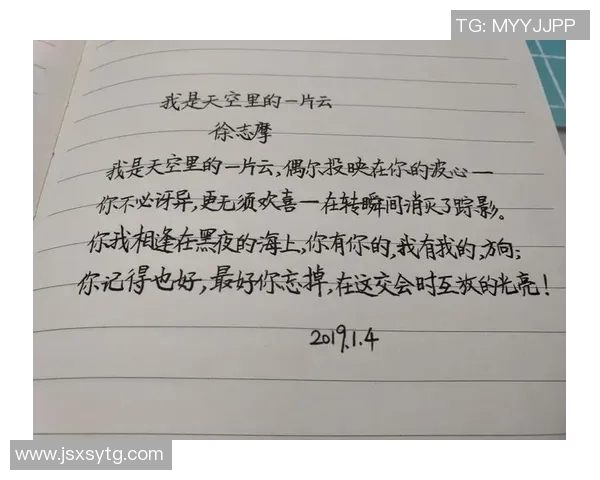 TG: MYYJJPP
我是天空里的一片云
徐志摩
我是天空里的一片云,偶尔投映在你的波心一
你不必讶异,更无须欢喜一在转瞬间消灭了踪影。
你我相逢在黑夜的海上,你有你的,我有我的,方向;
你记得也好,最好你忘掉,在这交会时互放的光亮!
2019.1.4
www.jsxsytg.com